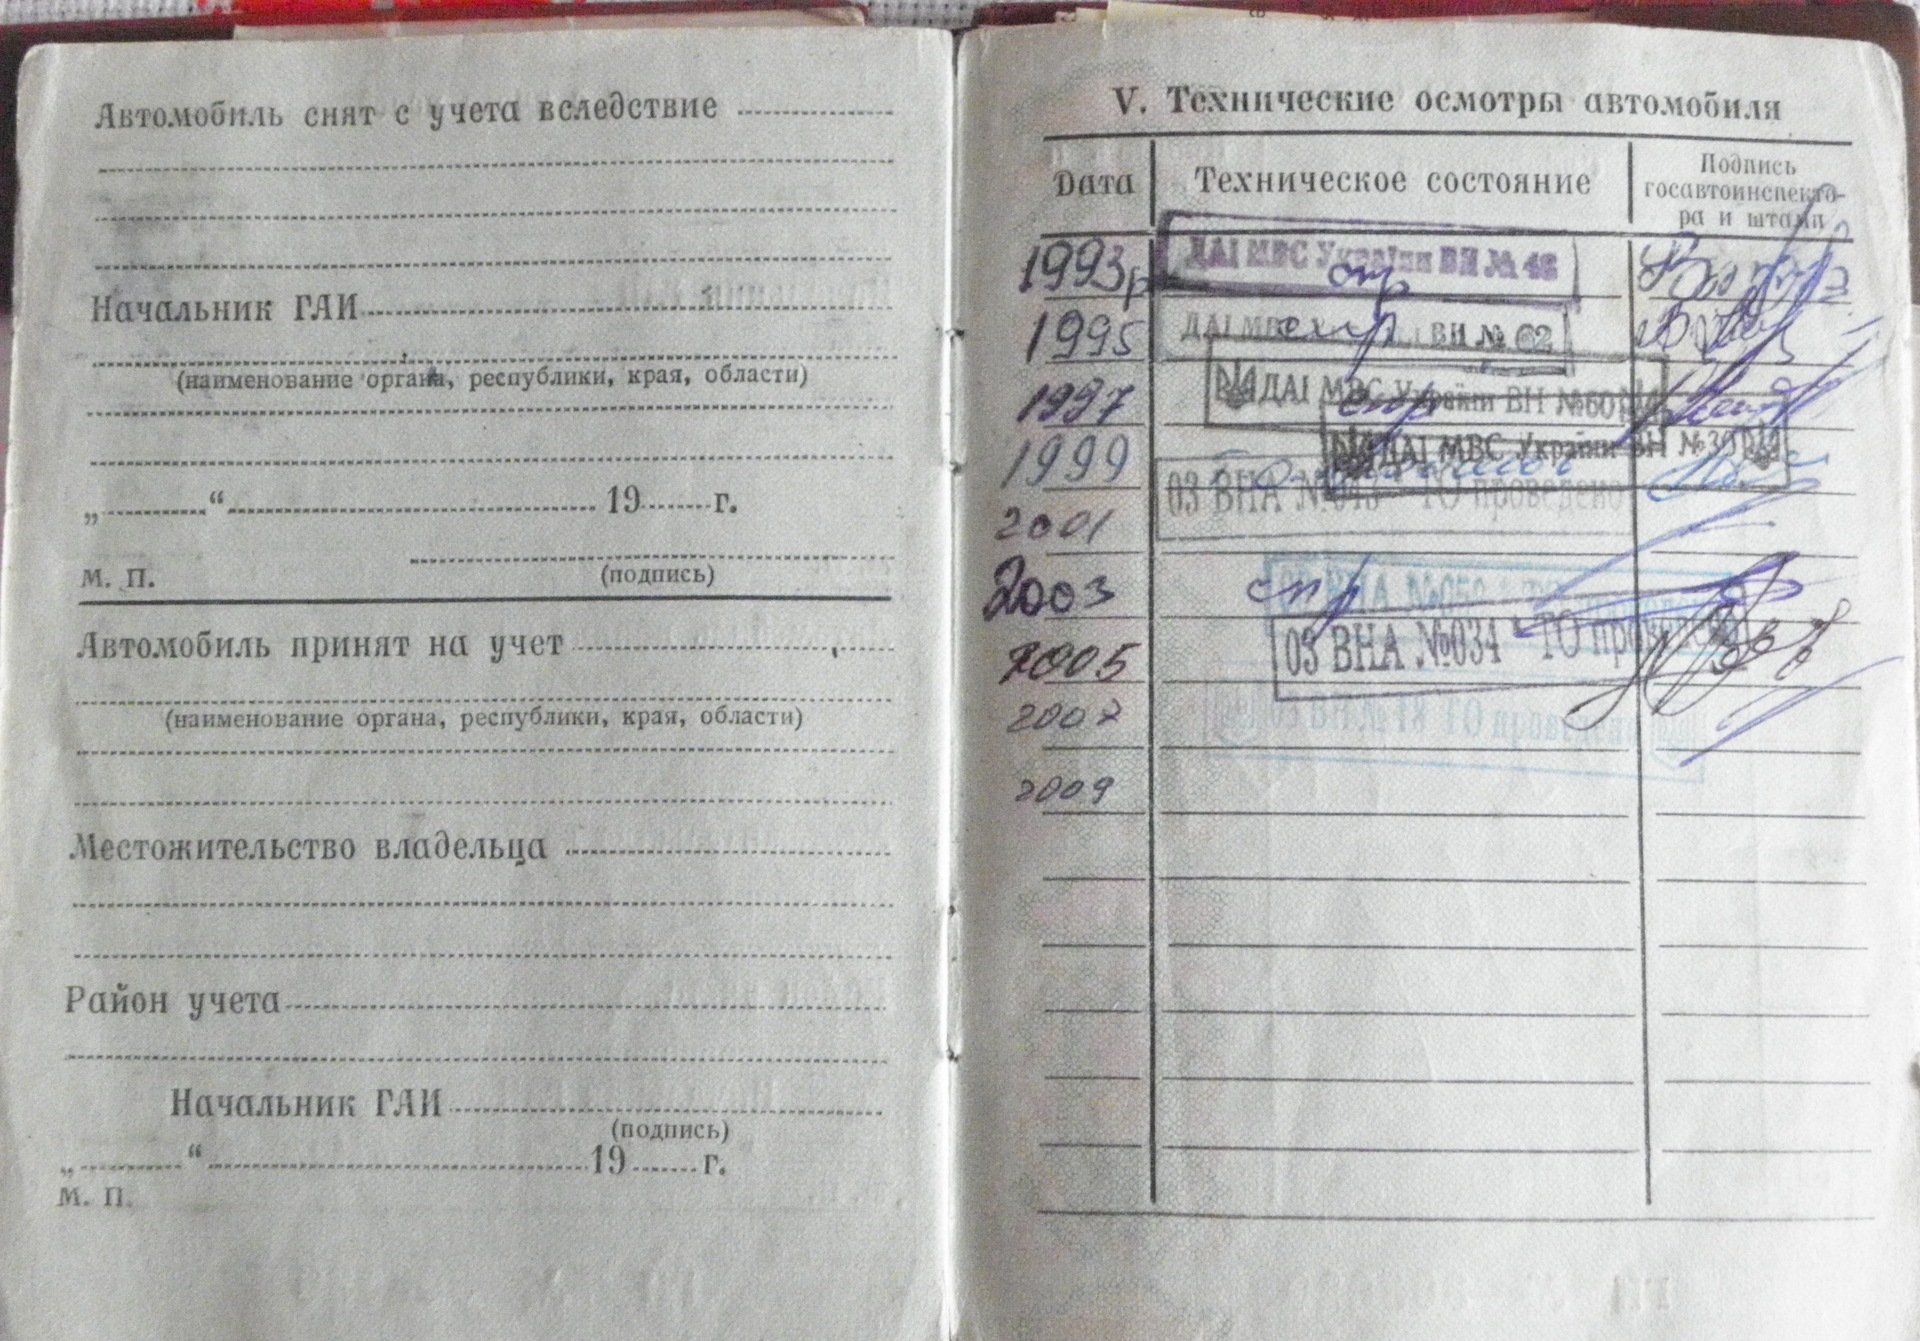 Автомобиль снят с учета вследствие
Начальник ГАИ
(наименование органа, республики, края, области)
„ “ 19 г.
(подпись)
М. П.
Автомобиль принят на учет
(наименование органа, республики, края, области)
Местожительство владельца
Район учета
Начальник ГАИ
(подпись)
„ “ 19 г.
М. П.
V. Технические осмотры автомобиля
Дата Техническое состояние Подпись
госавтоинспекто-
ра и штамп
1993р ДАІ МВС України ВН № 48
спр
1995 ДАІ МВС ВН № 62
спр
1997 ДАІ МВС України ВН №60
спр
1999 ДАІ МВС України ВН №39
03 ВНА ТО проведено
2001
2003 спр ВНА №052
2005 03 ВНА №034 ТО проведено
2007 ТО проведено
2009